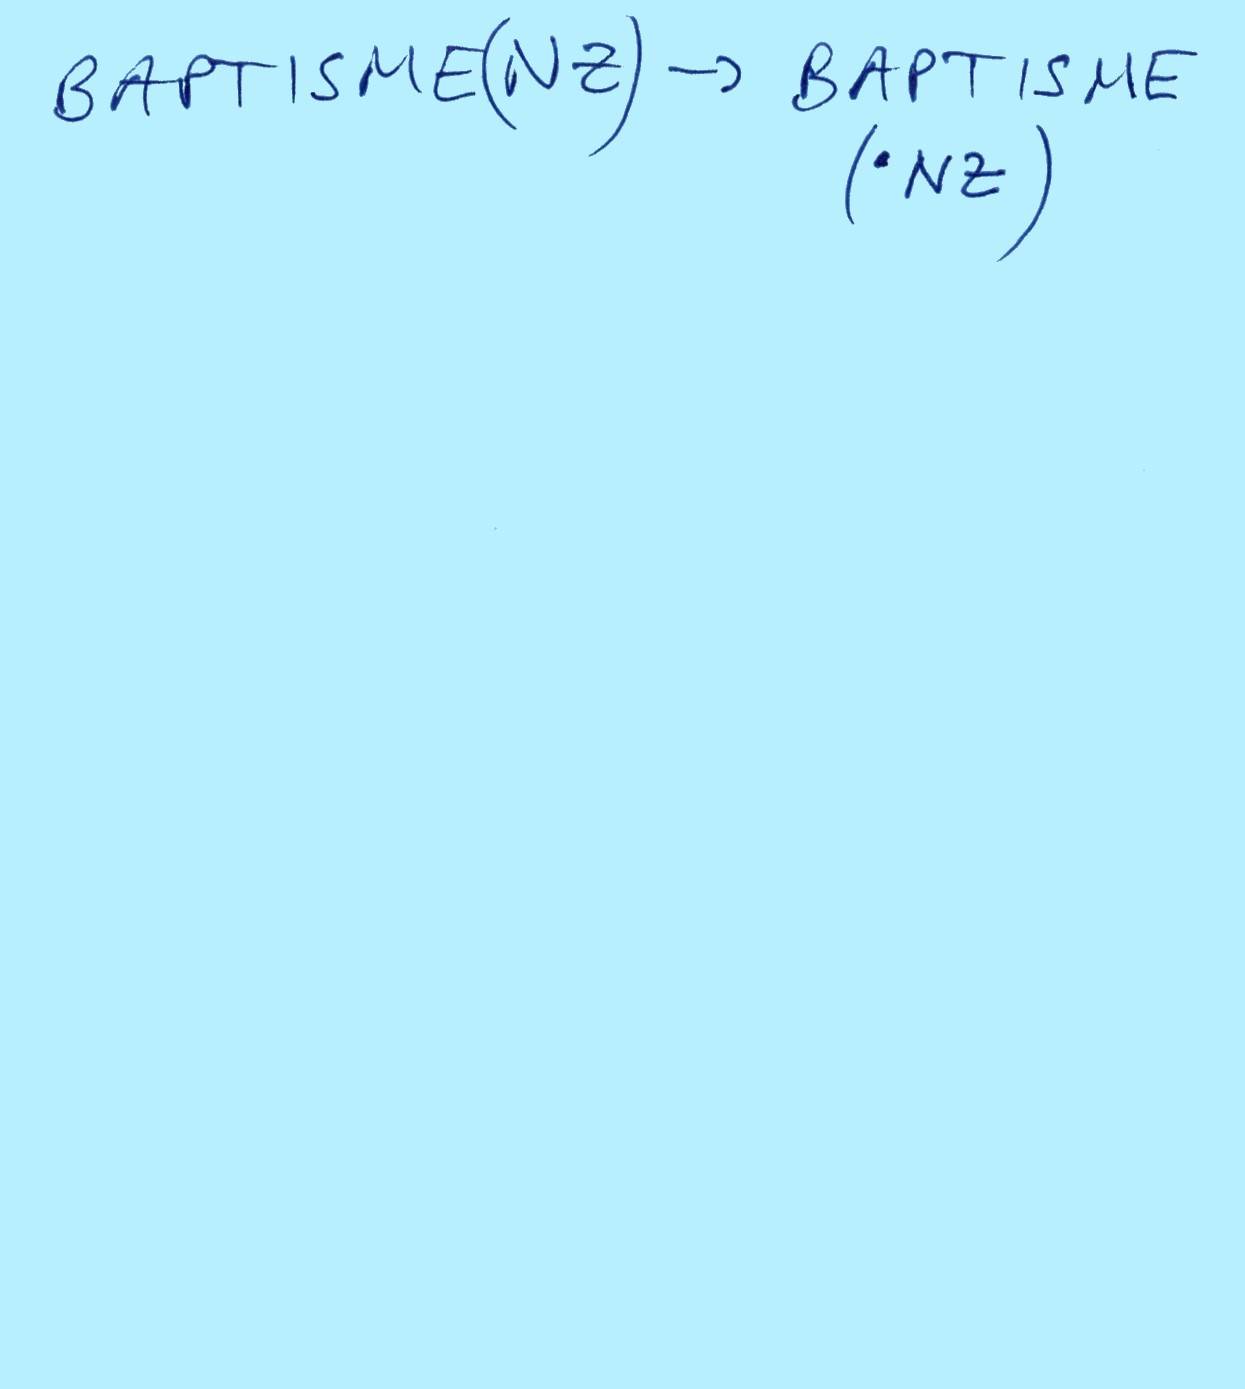 BAPTISME(NZ) → BAPTISME
(•NZ)